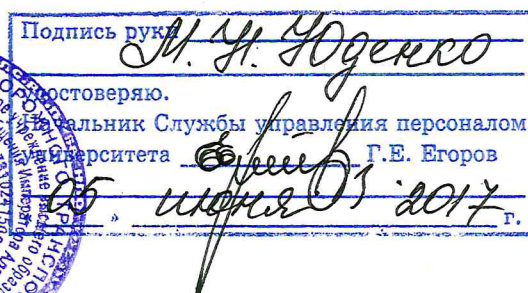 Подпись руки М. Н. Юденко
удостоверяю.
Начальник Службы управления персоналом
университета Г.Е. Егоров
05 " июня 2017 г.